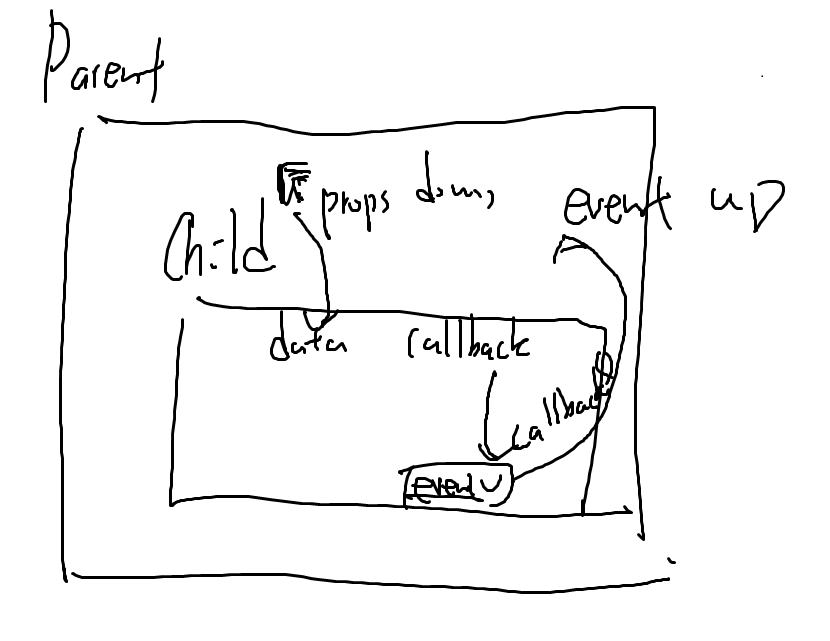 Parent
props down
event up
Child
data callback
callback
event